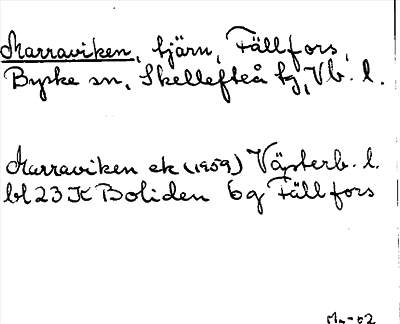 Marraviken, tjärn, Fällfors,
Byske sn, Skellefteå tg, Vb. l.
Marraviken ek (1959) Västerb. l.
bl 23 K Boliden 6g Fällfors